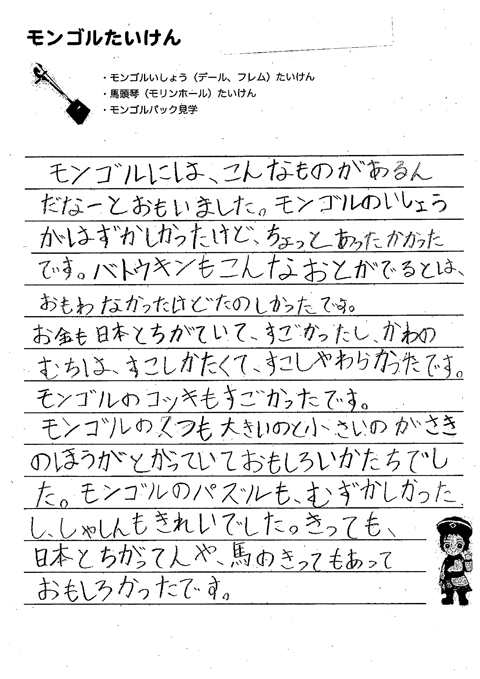 モンゴルたいけん
・モンゴルいしょう（デール、フレム）たいけん
・馬頭琴（モリンホール）たいけん
・モンゴルパック見学
モンゴルには、こんなものがあるん
だなーとおもいました。モンゴルのいしょう
がはずかしかったけど、ちょっとあったかかった
です。バトウキンもこんなおとがでるとは、
おもわなかったけどたのしかったです。
お金も日本とちがていて、すごかったし、かわの
むちは、すこしかたくて、すこしやわらかったです。
モンゴルのコッキもすごかったです。
モンゴルのくつも大きいのと小さいのがさき
のほうがとがっていておもしろいかたちでし
た。モンゴルのパズルも、むずかしかった
し、しゃしんもきれいでした。きっても、
日本とちがって人や、馬のきってもあって
おもしろかったです。